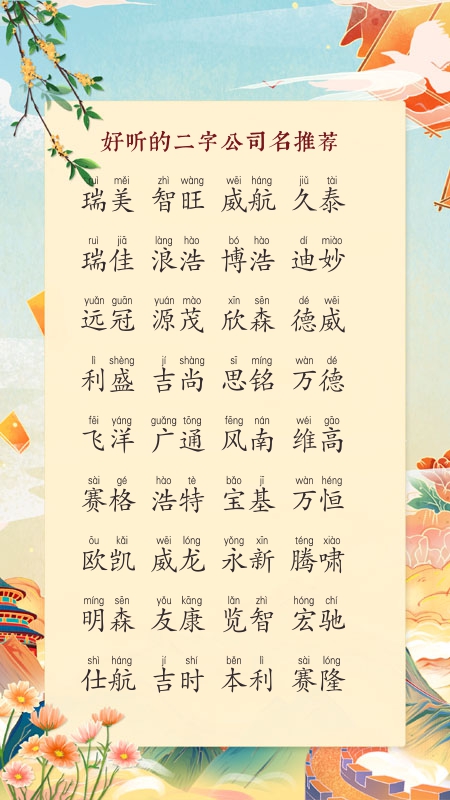 好听的二字公司名推荐
ruì měi zhì wàng wēi háng jiǔ tài
瑞美 智旺 威航 久泰
ruì jiā làng hào bó hào dí miào
瑞佳 浪浩 博浩 迪妙
yuǎn guān yuán mào xīn sēn dé wēi
远冠 源茂 欣森 德威
lì shèng jí shàng sī míng wàn dé
利盛 吉尚 思铭 万德
fēi yáng guǎng tōng fēng nán wéi gāo
飞洋 广通 风南 维高
sài gé hào tè bǎo jī wàn héng
赛格 浩特 宝基 万恒
ōu kǎi wēi lóng yǒng xīn téng xiào
欧凯 威龙 永新 腾啸
míng sēn yǒu kāng lǎn zhì hóng chí
明森 友康 览智 宏驰
shì háng jí shí běn lì sài lóng
仕航 吉时 本利 赛隆